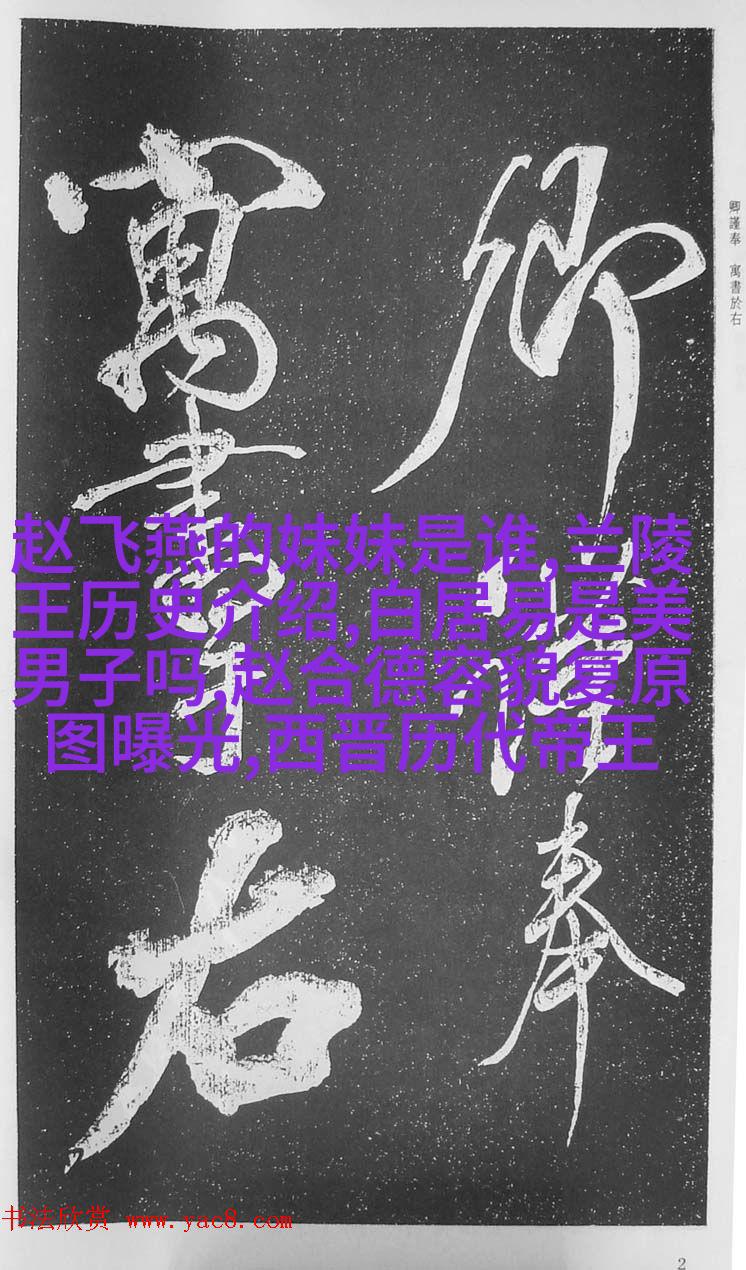 卿謹奉
寓書於右
卿謹奉　寓書於右
赵飞燕的妹妹是谁,兰陵
王历史介绍,白居易是美
男子吗,赵合德容貌复原
图曝光,西晋历代帝王
书法欣赏 www.yac8.com
2